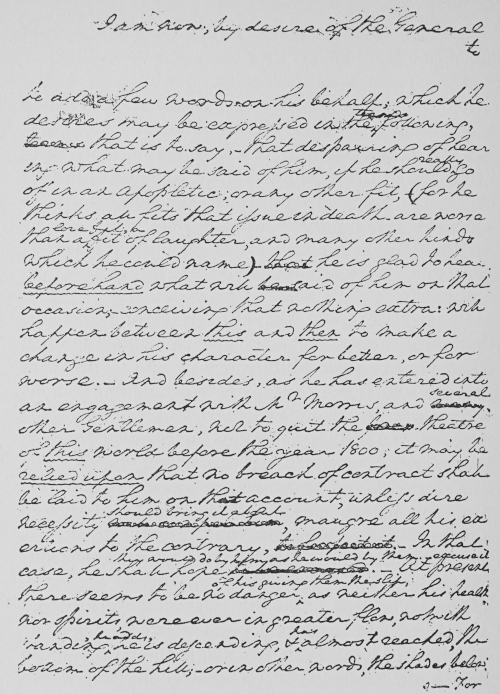 I am now, by desire of the General
to
to add a few words on his behalf; which he
desires may be expressed in the terms following,
that is to say,—that despairing of hear
ing what may be said of him, if he should really go
of in an apopletic, or any other fit, (for he
thinks all fits that issue in death are worse
than a love fit, a fit of laughter, and many other kinds
which he could name) he is glad to hear
beforehand what will be said of him on that
occasion; conceiving that nothing extra: will
happen between this and then to make a
change in his character for better, or for
worse.—And besides, as he has entered into
an engagement with Mr. Morris, and several
other Gentlemen, not to quit the theatre
of this world before the year 1800; it may be
relied upon that no breach of contract shall
be laid to him on that account, unless dire
necessity should bring it about, maugre all his ex
ertions to the contrary.—In that
case, he shall hope they would do by him as he would by them, excuse it.—At present
there seems to be no danger of his giving them the slip, as neither his health
nor spirits were ever in greater flow, notwith
standing, he adds, he is descending, & has almost reached the
bottom of the hill;—or in other words, the shades below
—For